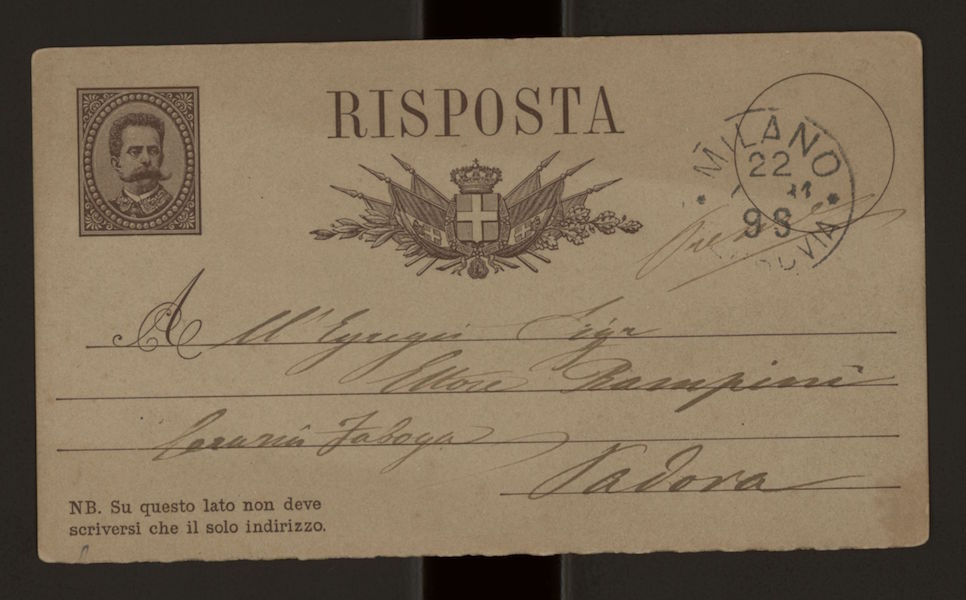 RISPOSTA
MILANO
22
11
93
FERROVIA
All'Egregio Sigr
Ettore Rampini
Padova
NB. Su questo lato non deve
scriversi che il solo indirizzo.